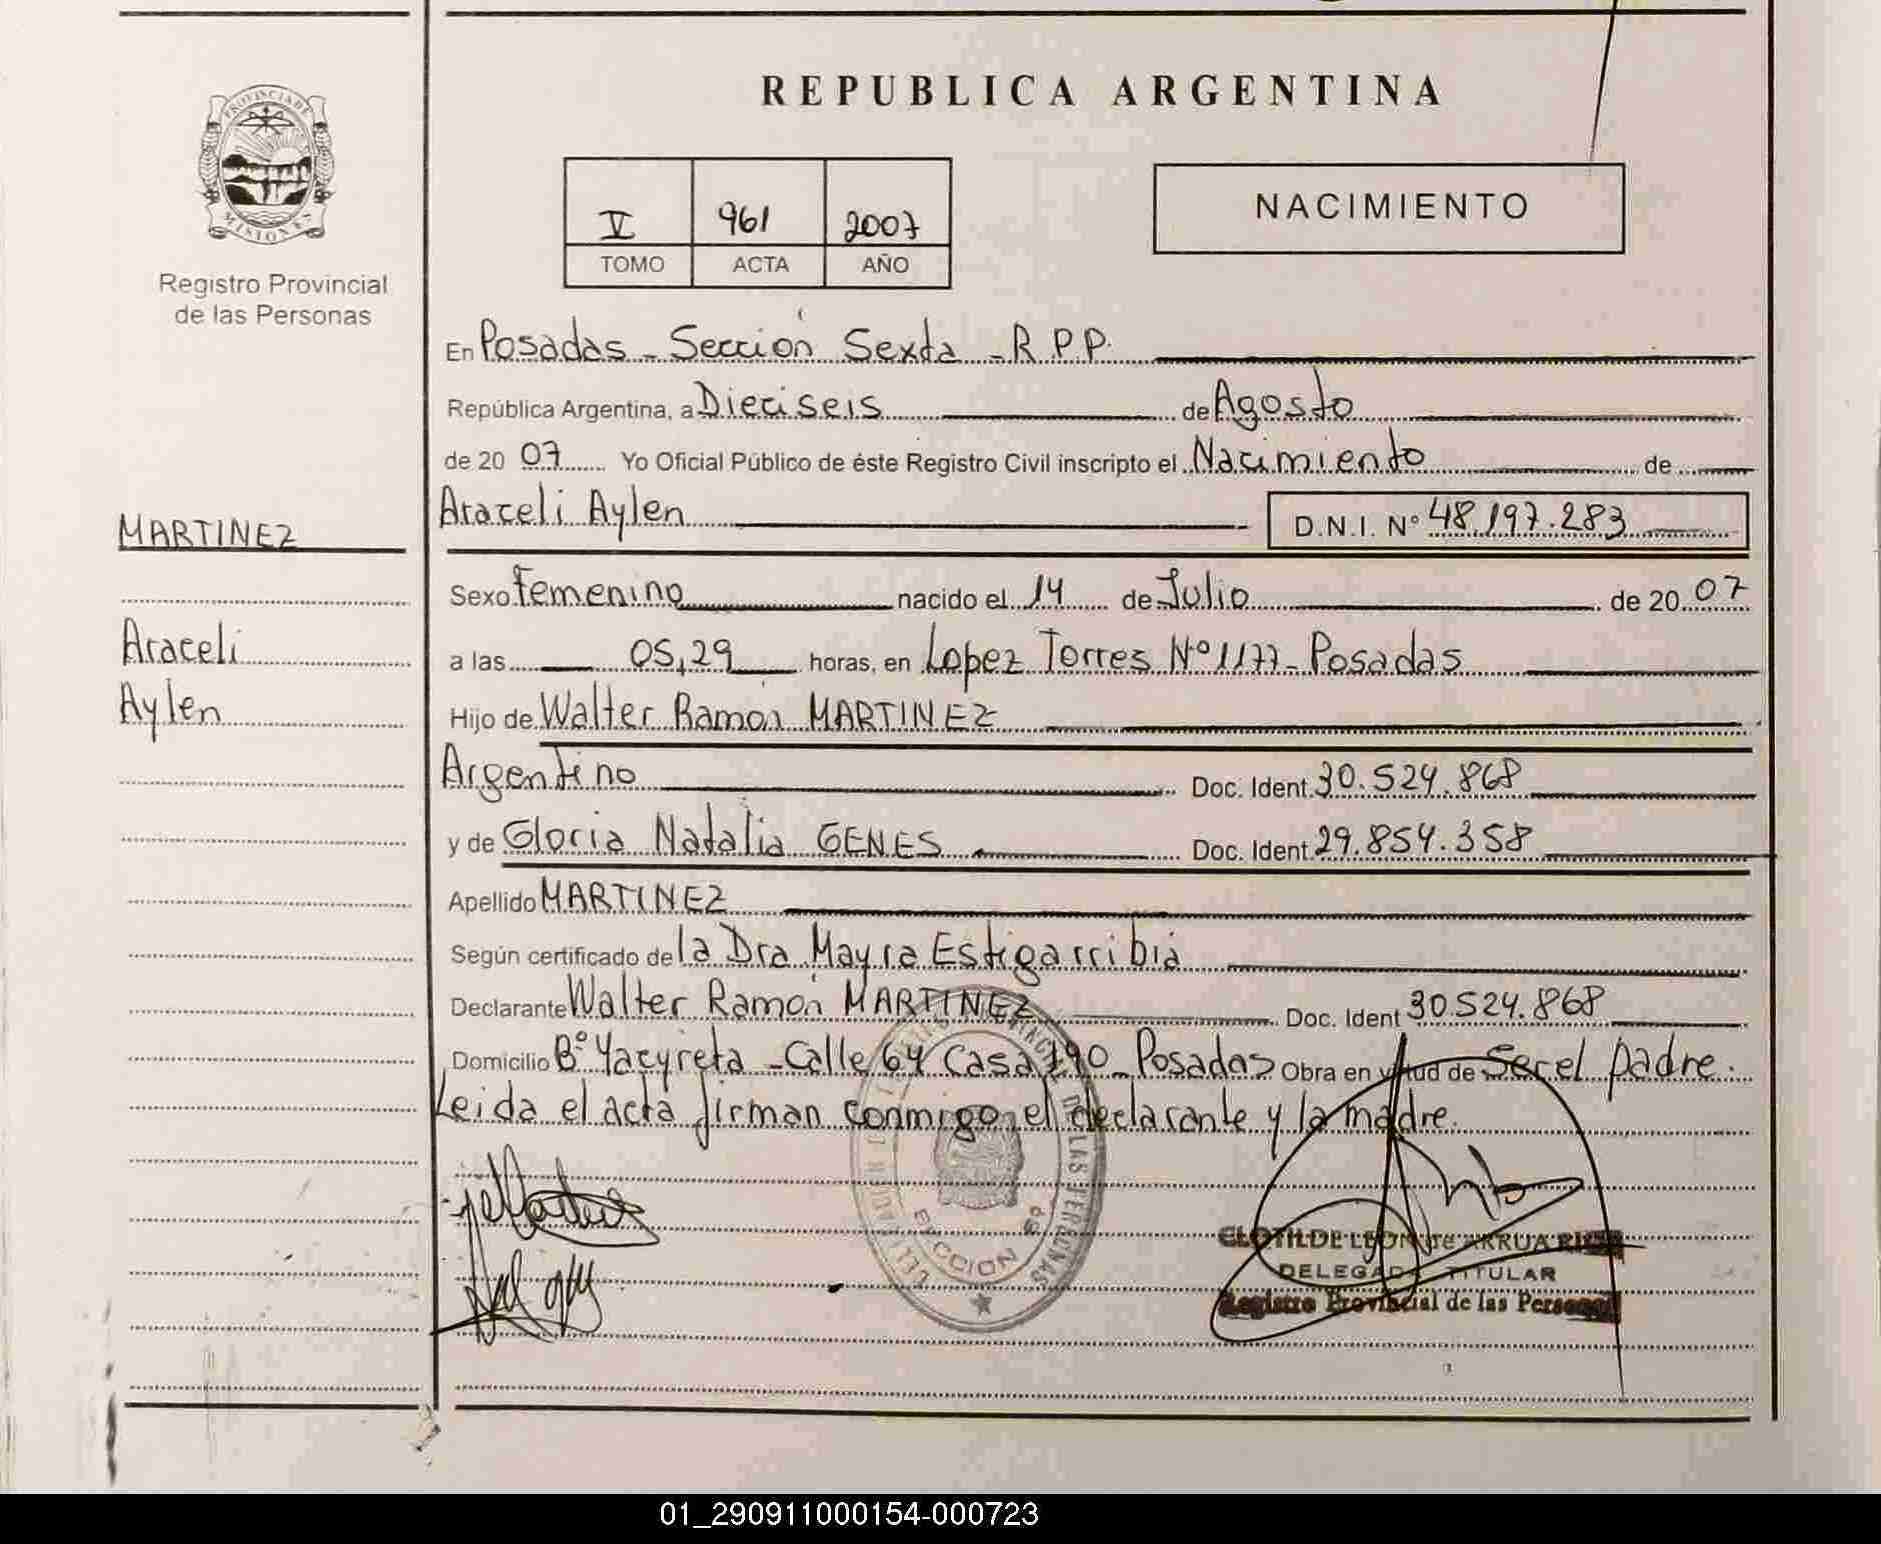 REPUBLICA ARGENTINA
PROVINCIA DE
MISIONES
Registro Provincial
de las Personas
V 961 2007
TOMO ACTA AÑO
NACIMIENTO
En Posadas - Sección Sexta - R P P.
República Argentina, a Dieciseis de Agosto
de 20 07 Yo Oficial Público de éste Registro Civil inscripto el Nacimiento de
MARTINEZ
Araceli Aylen D.N.I. Nº 48.197.283
Sexo Femenino nacido el 14 de Julio de 20 07
Araceli
a las 05,29 horas, en Lopez Torres Nº 1177 - Posadas
Aylen
Hijo de Walter Ramón MARTINEZ
Argentino Doc. Ident. 30.524.868
y de Gloria Natalia GENES Doc. Ident. 29.854.358
Apellido MARTINEZ
Según certificado de la Dra Mayra Estigarribia
Declarante Walter Ramón MARTINEZ Doc. Ident 30.524.868
Domicilio Bº Yacyreta - Calle 64 Casa 790 - Posadas Obra en virtud de Ser el padre.
Leida el acta firman conmigo el declarante y la madre.
DE LAS PERSONAS
SECCION 6º
CLOTILDE LEON de ARRUA
DELEGADA TITULAR
Registro Provincial de las Personas
01_290911000154-000723